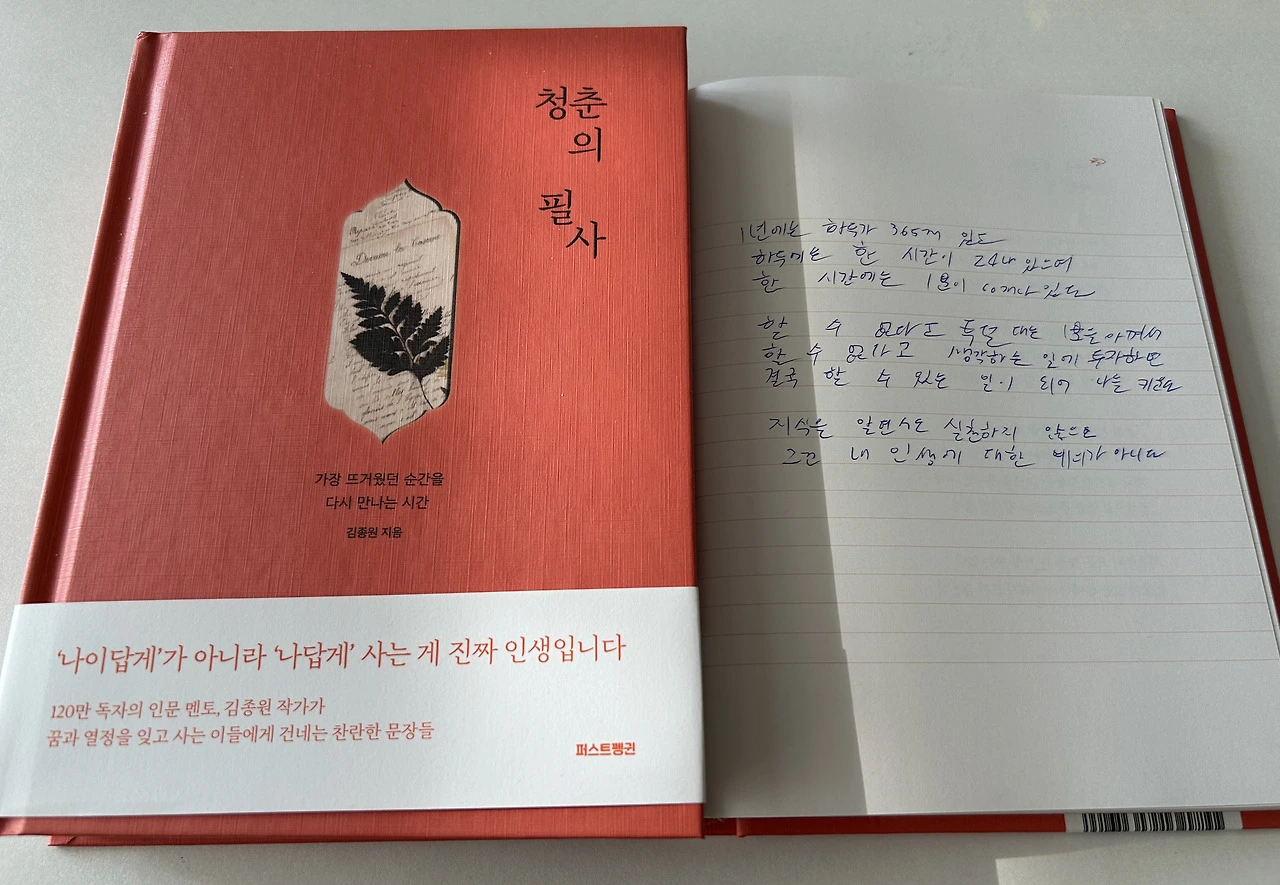 청춘
의
필
사
가장 뜨거웠던 순간을
다시 만나는 시간
김종원 지음
‘나이답게’가 아니라 ‘나답게’ 사는 게 진짜 인생입니다
120만 독자의 인문 멘토, 김종원 작가가
꿈과 열정을 잊고 사는 이들에게 건네는 찬란한 문장들
퍼스트펭귄
1년에는 하루가 365개 있고
하루에는 한 시간이 24개 있으며
한 시간에는 1분이 60개나 있다
할 수 없다고 특별 대는 1분을 아껴서
할 수 없다고 생각하는 일에 투자하면
결국 할 수 있는 일이 되어 나를 키운다
지식을 알면서도 실천하지 않으면
그건 내 인생에 대한 예의가 아니다